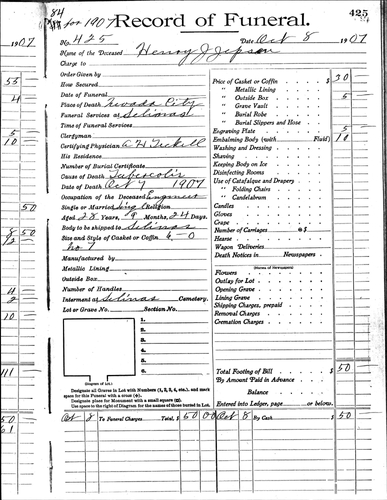 84
for 1907
Record of Funeral.
425
1907
No. 425
Date Oct 8 1907
Name of the Deceased Henry J Jepson
Charge to
Order Given by
How Secured
Date of Funeral
Place of Death Nevada City
Funeral Services at Selinas
Time of Funeral Services
Clergyman
Certifying Physician C H Tickell
His Residence
Number of Burial Certificate
Cause of Death Tubecolis
Date of Death Oct 7 1907
Occupation of the Deceased Engineer
Single or Married Sing Religion
Aged 28 Years, 9 Months, 24 Days.
Body to be shipped to Selinas
Size and Style of Casket or Coffin 6-0
No 7
Manufactured by
Metallic Lining
Outside Box
Number of Handles
Interment at Selinas Cemetery.
Lot or Grave No. Section No.
1.
2.
3.
4.
5.
6.
(Diagram of Lot.)
Designate all Graves in Lot with Numbers (1, 2, 3, 4, etc.), and mark
space for this Funeral with a cross (+).
Designate place for Monument with a small square (□).
Use space to the right of Diagram for the names of those buried in Lot.
Price of Casket or Coffin $ 30
" Metallic Lining
" Outside Box 5
" Grave Vault
" Burial Robe
" Burial Slippers and Hose
Engraving Plate 5
Embalming Body (with Fluid) 10
Washing and Dressing
Shaving
Keeping Body on Ice
Disinfecting Rooms
Use of Catafalque and Drapery
" Folding Chairs
" Candelabrum
Candles
Gloves
Crape
Number of Carriages @ $
Hearse
Wagon Deliveries
Death Notices in Newspapers
Flowers
Outlay for Lot
Opening Grave
Lining Grave
Shipping Charges, prepaid
Removal Charges
Cremation Charges
Total Footing of Bill $ 50
By Amount Paid in Advance
Balance
Entered into Ledger, page or below.
Oct 8 To Funeral Charges Total, $ 50 00 Oct 8 By Cash $ 50